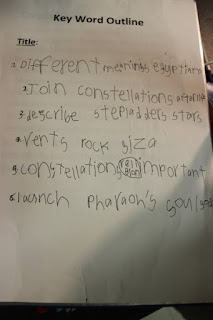 Key Word Outline
Title:
1. Different meanings egyptians
2. Join constellations afterlife
3. describe stepladders stars
4. vents rock giza
5. constellations important
6. launch pharaoh's soul